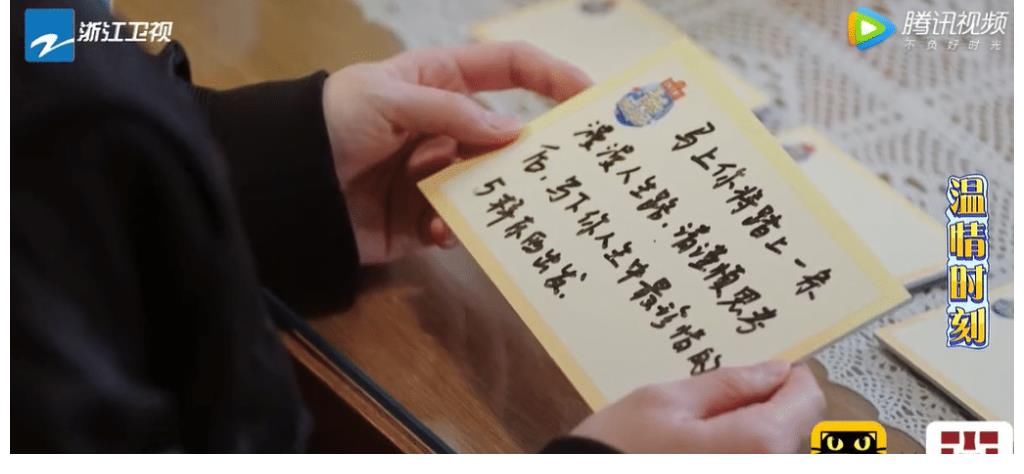 浙江卫视
腾讯视频
不负好时光
马上你将踏上一条
漫漫人生路，请谨慎思考
后，写下你人生中最珍惜的
5样东西出发.
温情时刻